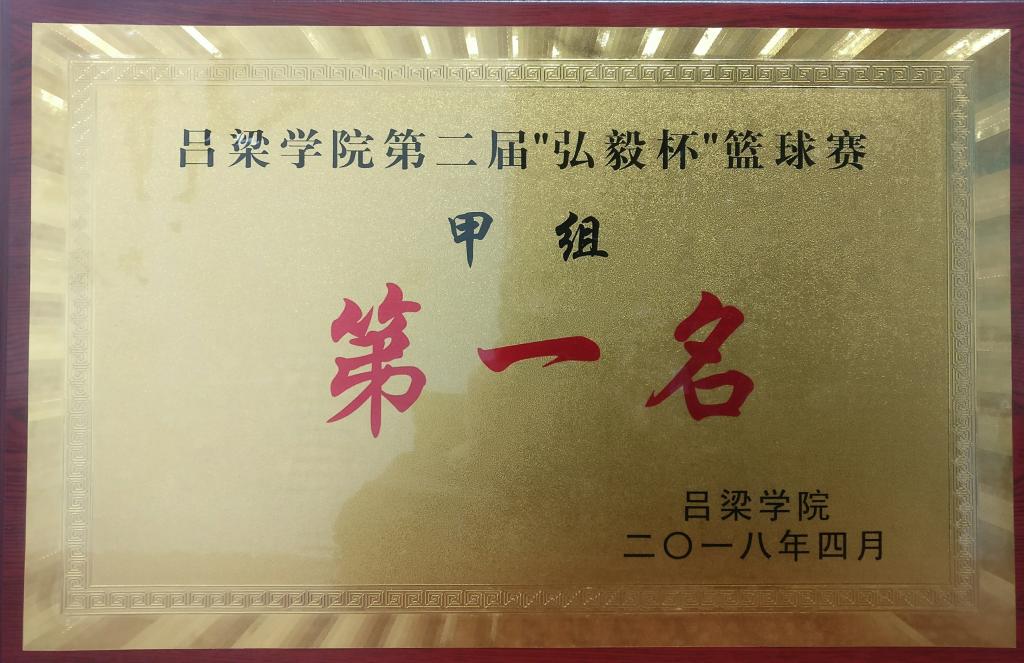 吕梁学院第二届"弘毅杯"篮球赛
甲 组
第一名
吕梁学院
二〇一八年四月